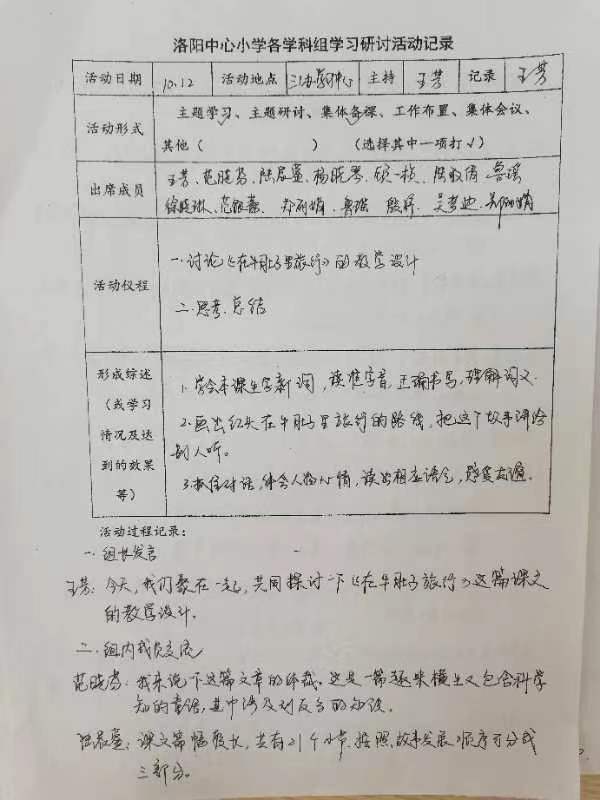 洛阳中心小学各学科组学习研讨活动记录
活动日期 10.12 活动地点 主持 王芳 记录 王芳
活动形式 主题学习、主题研讨、集体备课、工作布置、集体会议、
其他（ ） （选择其中一项打√）
出席成员 王芳、范晓芬、陆晨蜜、杨晓琴、
徐晓琳、 郑丽娟、鲁瑶 殷舒、吴梦迪、郑丽娟
活动仪程
一.讨论《在牛肚子里旅行》的教学设计
二.思考.总结
形成综述
（或学习
情况及达
到的效果
等）
1.学会本课生字新词，读准字音，正确书写，理解词义.
2.画出红头在牛肚子里旅行的路线，把这个故事讲给
别人听。
3.抓住对话，体会人物心情，读出相应语气，
活动过程记录：
一.组长发言
王芳：今天，我们聚在一起，共同探讨一下《在牛肚子旅行》这篇课文
的教学设计.
二.组内成员交流
范晓芬：我来说下这篇文章的体裁。这是一篇趣味横生又包含科学
知的童话，其中涉及到反刍的知识。
陆晨蜜：课文篇幅较长，共有21个小节.按照故事发展顺序可分成
三部分。